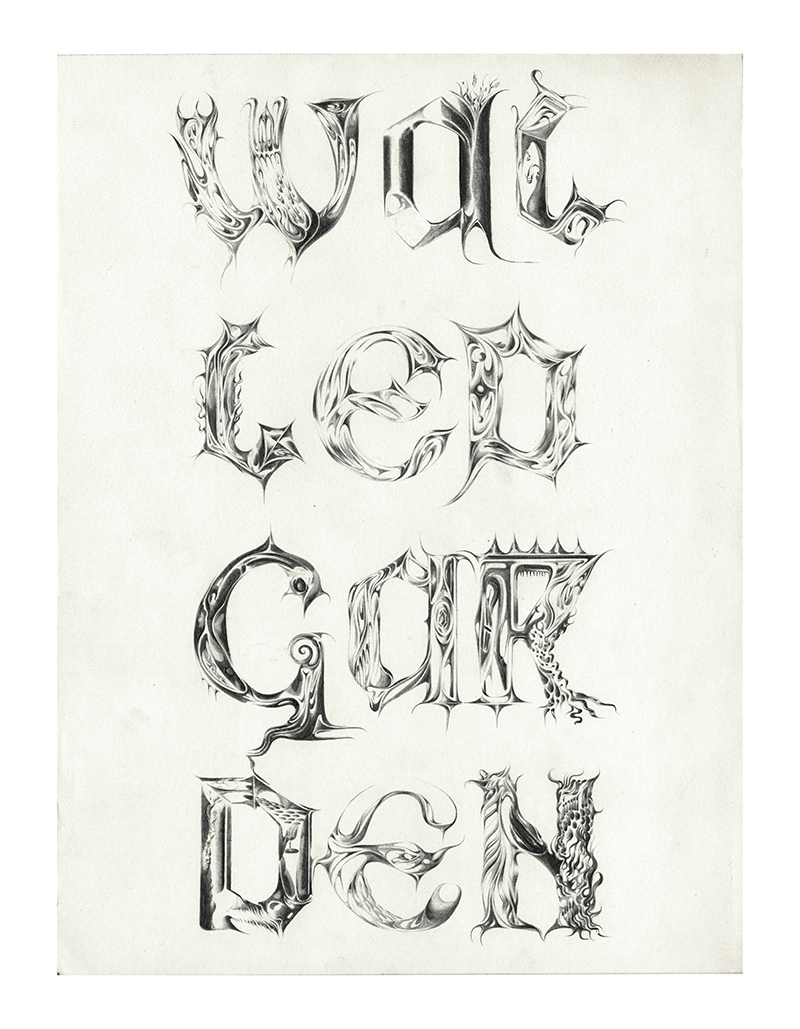 Wal
led
Gar
DeN